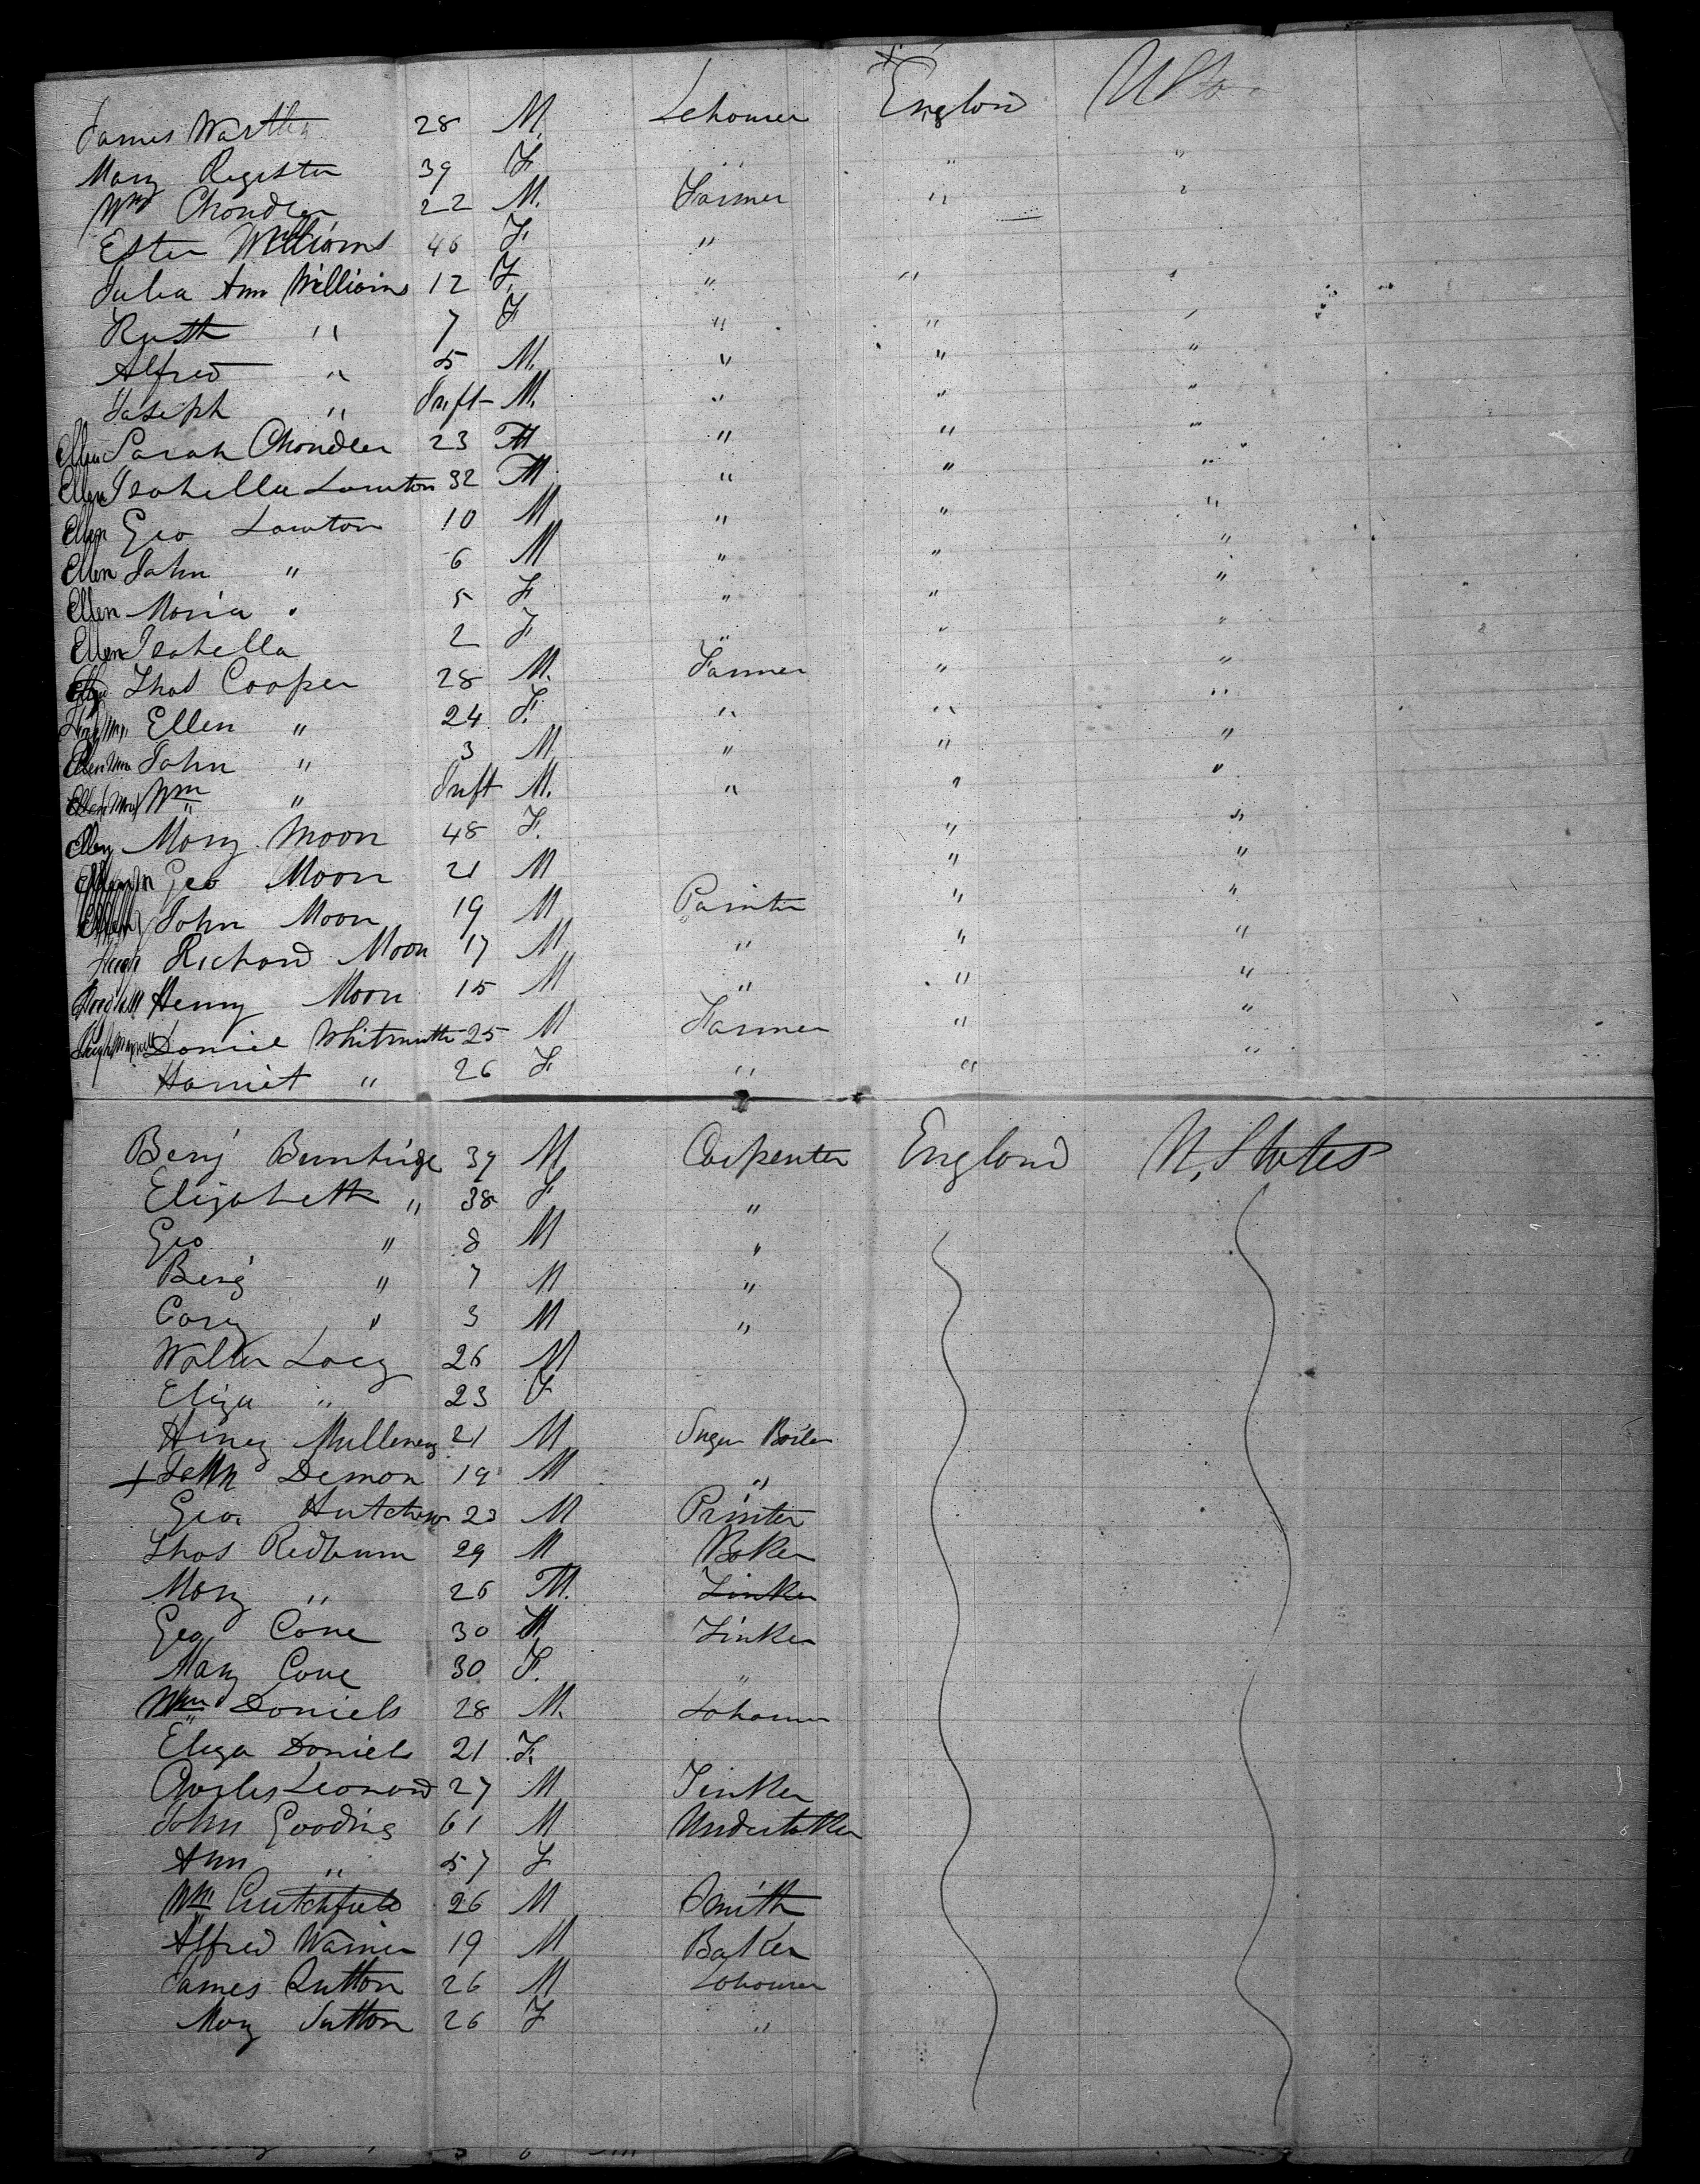 James 28 M. Labourer England U St
Mary Register 39 F " "
Wm Chandler 22 M. Farmer " "
Ester Williams 46 F. "
Julia Ann Williams 12 F. " " "
Ruth " 7 F " " "
Alfred " 5 M. " " "
Joseph " Inft M. " " "
Ellen Sarah Chandler 23 F " " "
Ellen Isabella Lawton 32 M " " "
Ellen Geo Lawton 10 M " " "
Ellen John " 6 M " " "
Ellen Maria " 5 F " " "
Ellen Isabella 2 F " " "
Thos Cooper 28 M. Farmer " "
Ellen " 24 F. " " "
John " 3 M " " "
Wm " Inft M. " " "
Ellen Mary Moon 48 F. " "
Geo Moon 21 M " "
John Moon 19 M Painter " "
Hugh Richard Moon 17 M " " "
Henry Moon 15 M " " "
Daniel 25 M Farmer " "
Harriet " 26 F " " "
Benj 39 M Carpenter England U. States
Elizabeth " 38 F "
Geo " 8 M "
Benj " 7 M "
Cary " 3 M "
Walter Lacy 26 M
Eliza " 23 F
Henry 21 M Sugar Boiler
+ John Demon 19 M "
Geo. 23 M Printer
Thos Redburn 29 M Baker
Mary " 26 M. Tinker
Geo Cone 30 M Tinker
Mary Cone 30 F. "
Wm Daniels 28 M. Labourer
Eliza Daniels 21 F.
Charles Leonard 27 M Tinker
John Gooding 61 M Undertaker
Ann " 57 F
Wm Crutchfield 26 M Smith
Alfred Warner 19 M Baker
James Sutton 26 M Labourer
Mary Sutton 26 F "